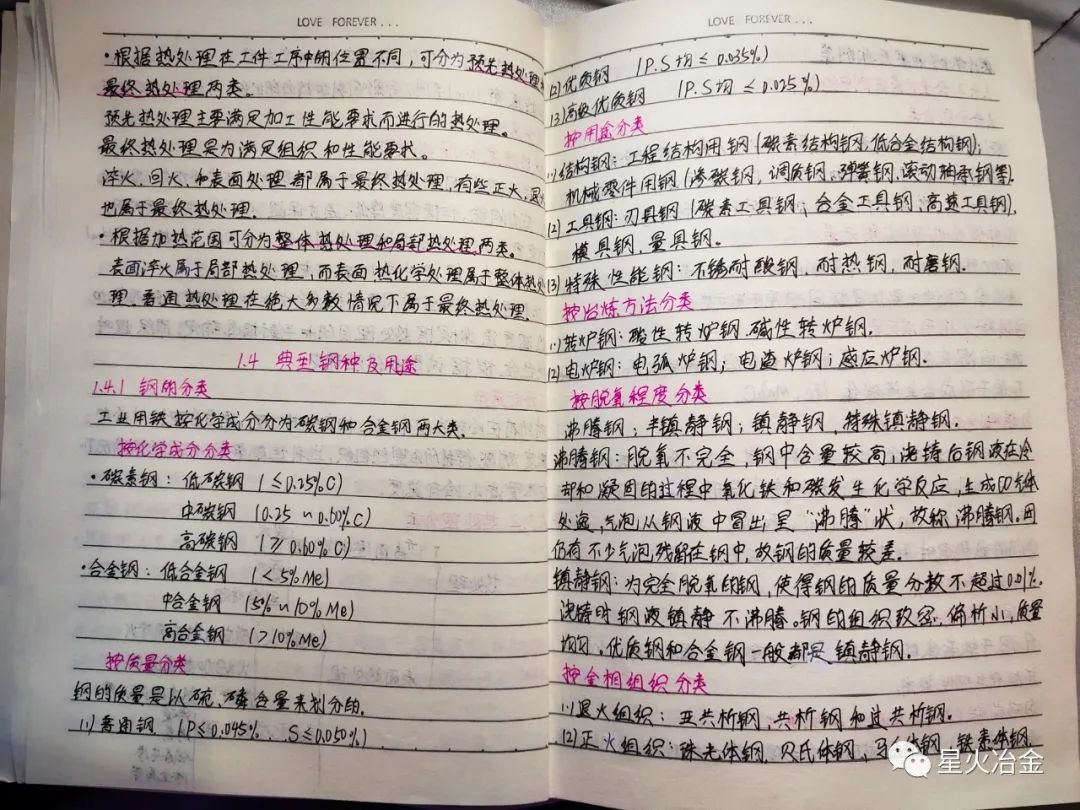 LOVE FOREVER...
·根据热处理在工件工序中的位置不同,可分为预先热处理和
最终热处理两类。
预先热处理主要满足加工性能要求而进行的热处理。
最终热处理是为满足组织和性能要求。
淬火、回火、和表面处理都属于最终热处理,有些正火、退火
也属于最终热处理.
·根据加热范围可分为整体热处理和局部热处理两类。
表面淬火属于局部热处理;而表面热化学处理属于整体热处
理.普通热处理在绝大多数情况下属于最终热处理.
1.4 典型钢种及用途
1.4.1 钢的分类
工业用铁按化学成分分为碳钢和合金钢两大类.
按化学成分分类
·碳素钢:低碳钢 (≤0.25%C)
中碳钢 (0.25~0.60%C)
高碳钢 (≥0.60%C)
·合金钢:低合金钢 (<5%Me)
中合金钢 (5%~10%Me)
高合金钢 (>10%Me)
按质量分类
钢的质量是以硫、磷含量来划分的.
(1)普通钢 (P≤0.045%.S≤0.050%)
LOVE FOREVER...
(2)优质钢 (P.S均≤0.035%)
(3)高级优质钢 (P.S均≤0.025%)
按用途分类
(1)结构钢:工程结构用钢(碳素结构钢,低合金结构钢);
机械零件用钢(渗碳钢,调质钢,弹簧钢,滚动轴承钢等).
(2)工具钢:刃具钢(碳素工具钢,合金工具钢,高速工具钢),
模具钢,量具钢.
(3)特殊性能钢:不锈耐酸钢,耐热钢,耐磨钢.
按冶炼方法分类
(1)转炉钢:酸性转炉钢.碱性转炉钢.
(2)电炉钢:电弧炉钢;电渣炉钢;感应炉钢.
按脱氧程度分类
沸腾钢;半镇静钢;镇静钢,特殊镇静钢.
沸腾钢:脱氧不完全,钢中含量较高,浇铸后钢液在冷
却和凝固的过程中氧化铁和碳发生化学反应,生成CO气体
处逸,气泡从钢液中冒出呈“沸腾”状,故称沸腾钢.因
仍有不少气泡残留在钢中,故钢的质量较差.
镇静钢:为完全脱氧的钢,使得钢的质量分数不超过0.01%.
浇铸时钢液镇静不沸腾。钢的组织致密,偏析小,质量
均匀.优质钢和合金钢一般都是镇静钢.
按金相组织分类
(1)退火组织:亚共析钢,共析钢和过共析钢.
(2)正火组织:珠光体钢,贝氏体钢,马氏体钢,铁素体钢
星火冶金